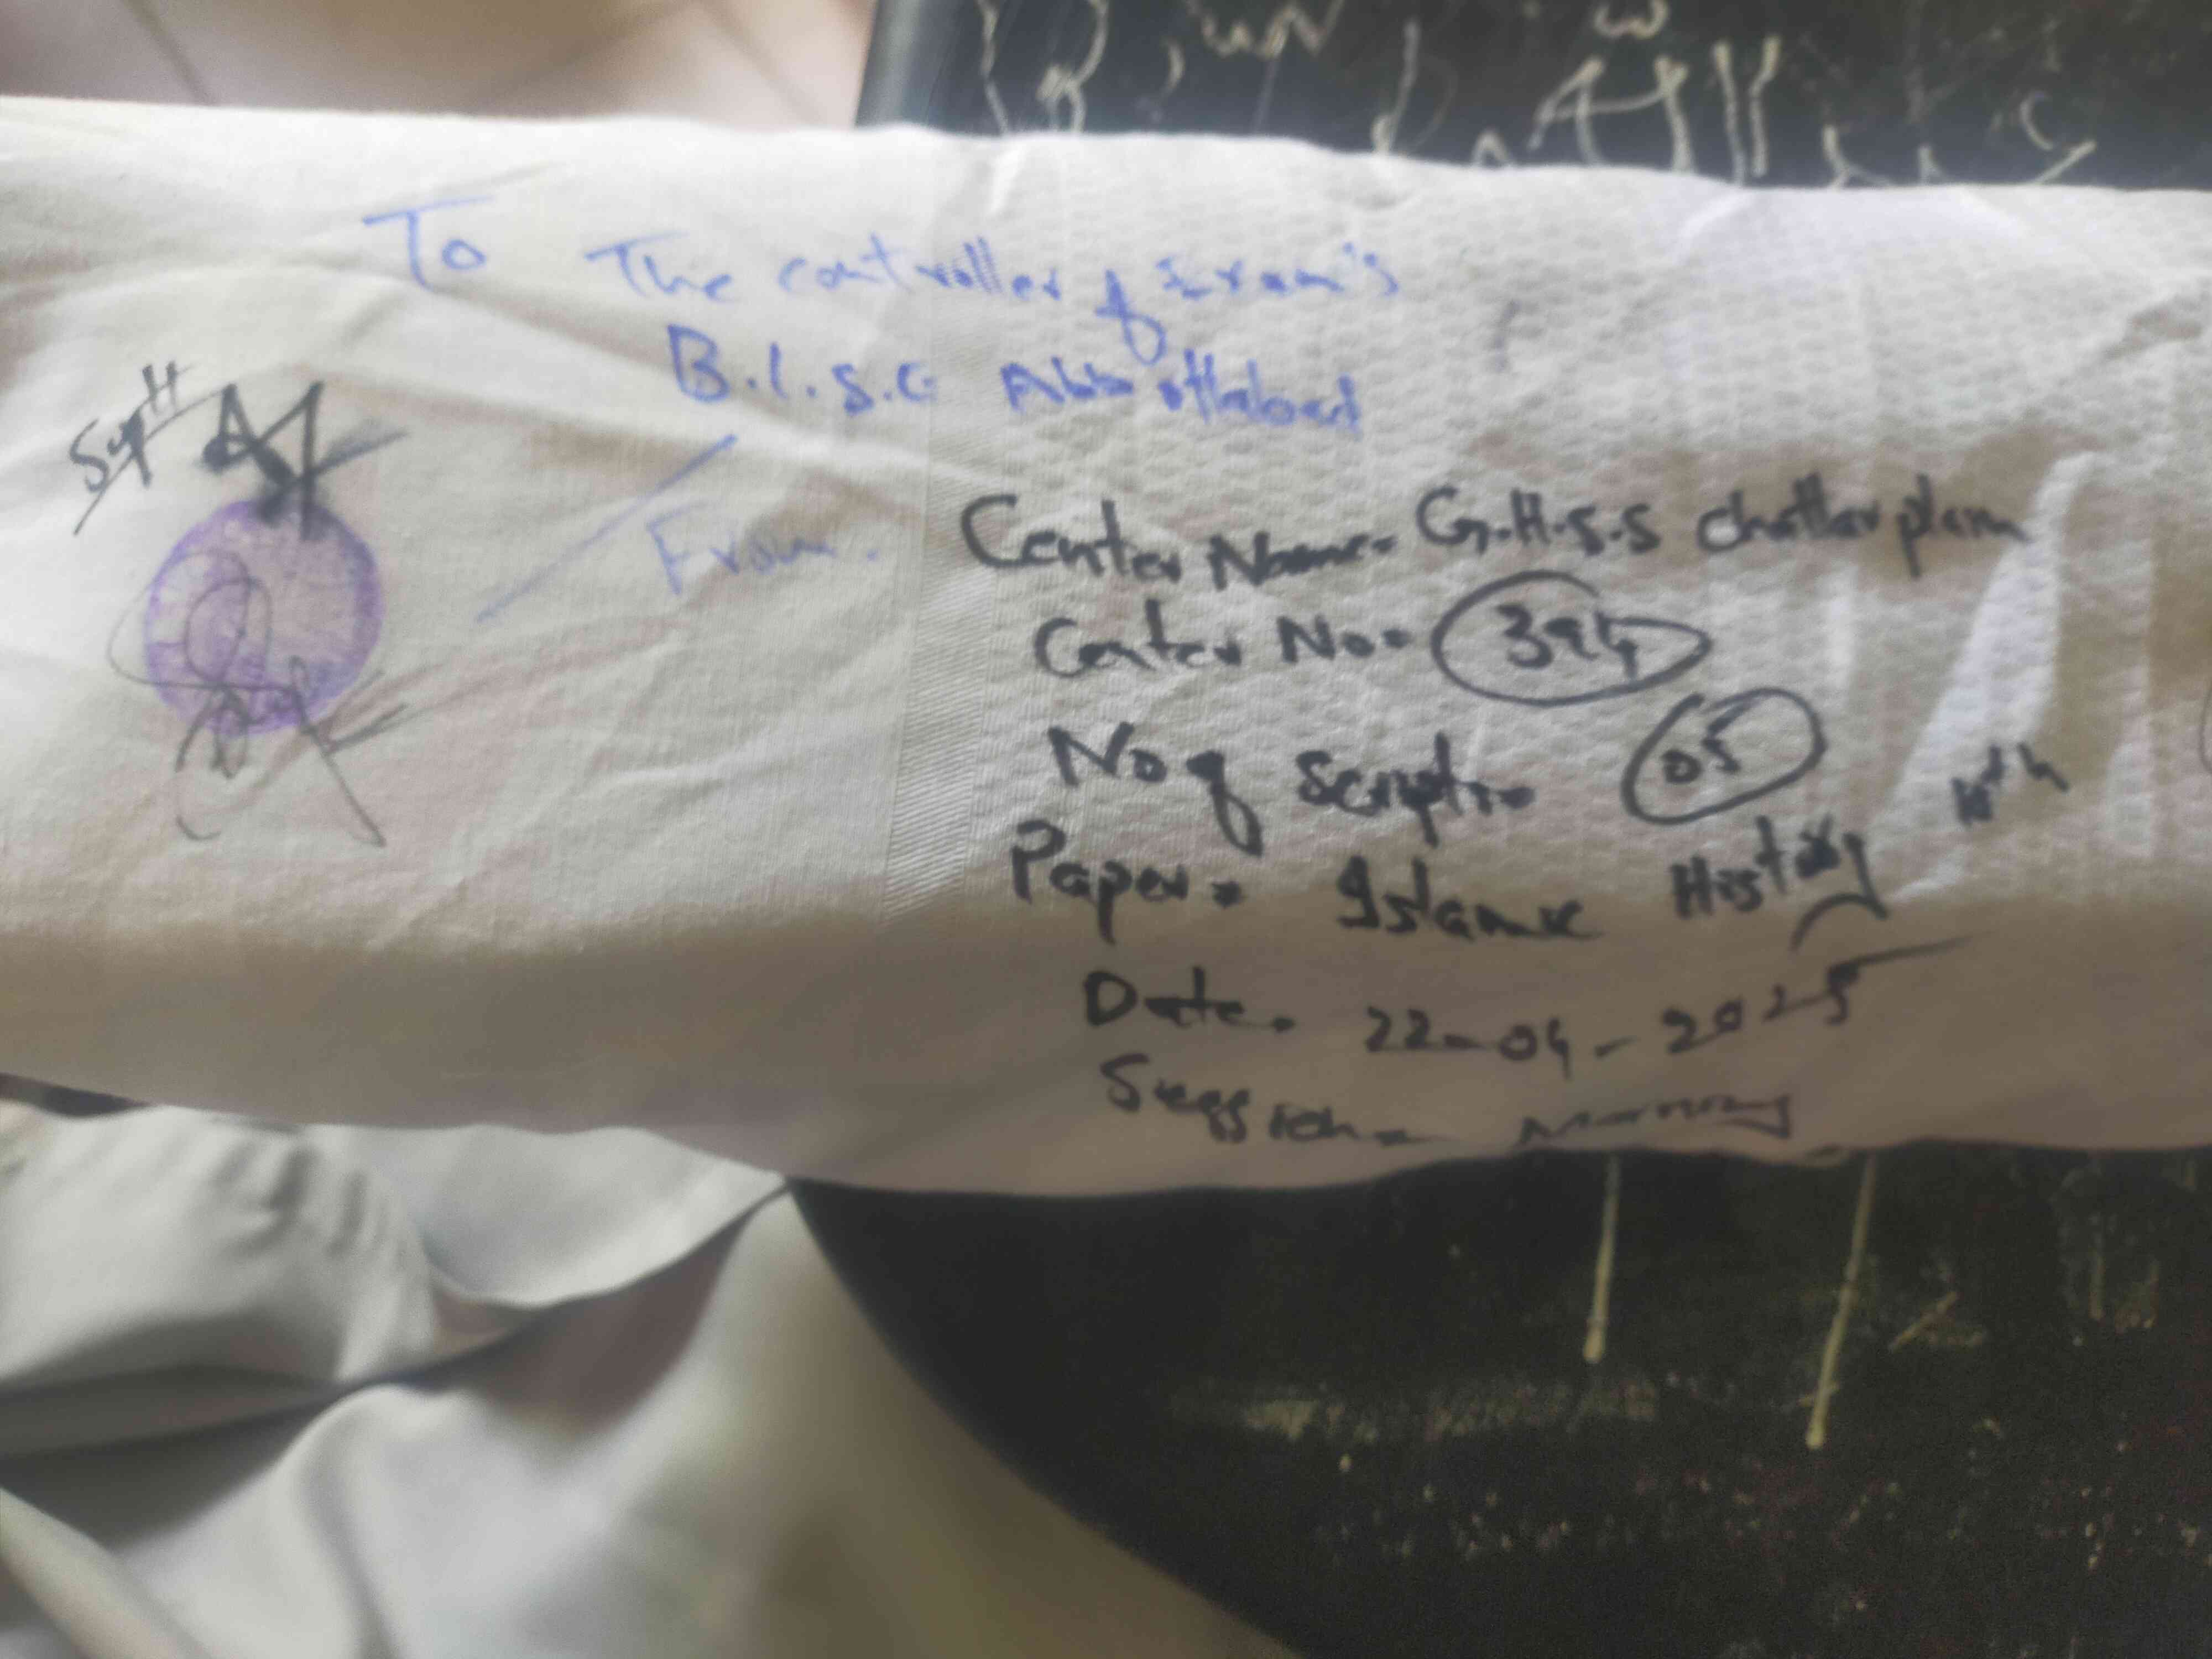 To The controller of Exam's
B.I.S.E Abbottabad
Suptt
From.
Center Name= G.H.S.S chatter plain
Center No= 394
No of Script= 05
Paper= Islamic History 10th
Date= 22-04-2025
Session= Morning